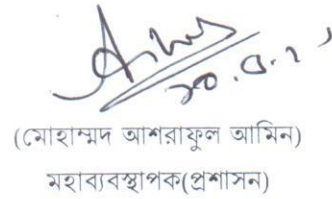 (মোহাম্মদ আশরাফুল আমিন)
মহাব্যবস্থাপক(প্রশাসন)